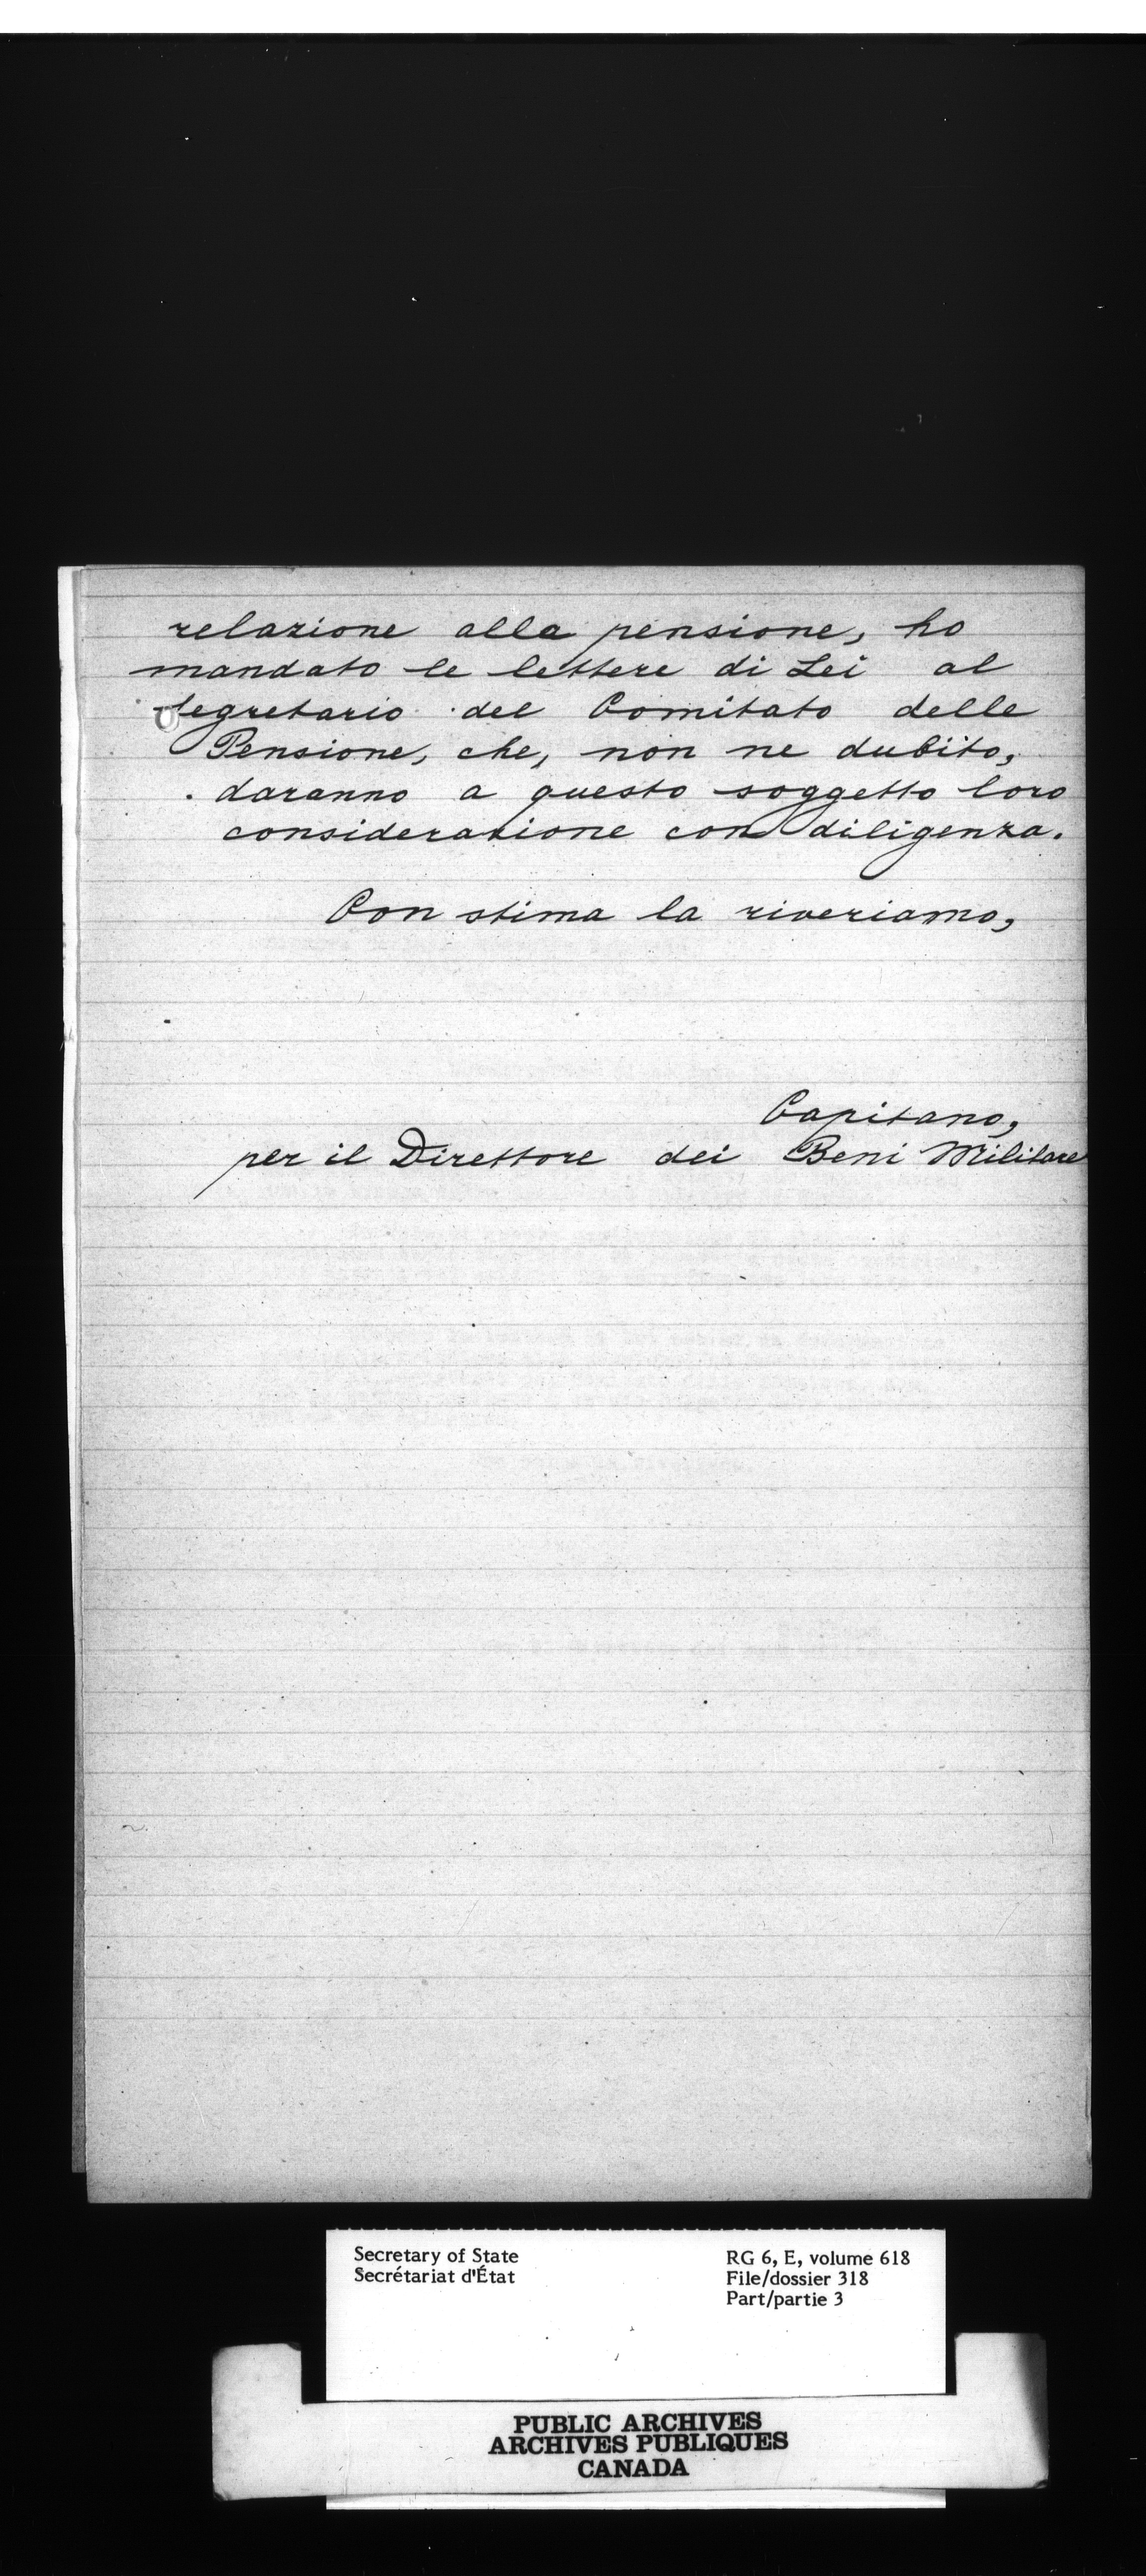 relazione alla pensione, ho
mandato le lettere di Lei al
Segretario del Comitato delle
Pensione, che, non ne dubito,
daranno a questo soggetto loro
considerazione con diligenza.
Con stima la riveriamo,
Capitano,
per il Direttore dei Beni Militare
Secretary of State
Secrétariat d'État
RG 6, E, volume 618
File/dossier 318
Part/partie 3
PUBLIC ARCHIVES
ARCHIVES PUBLIQUES
CANADA